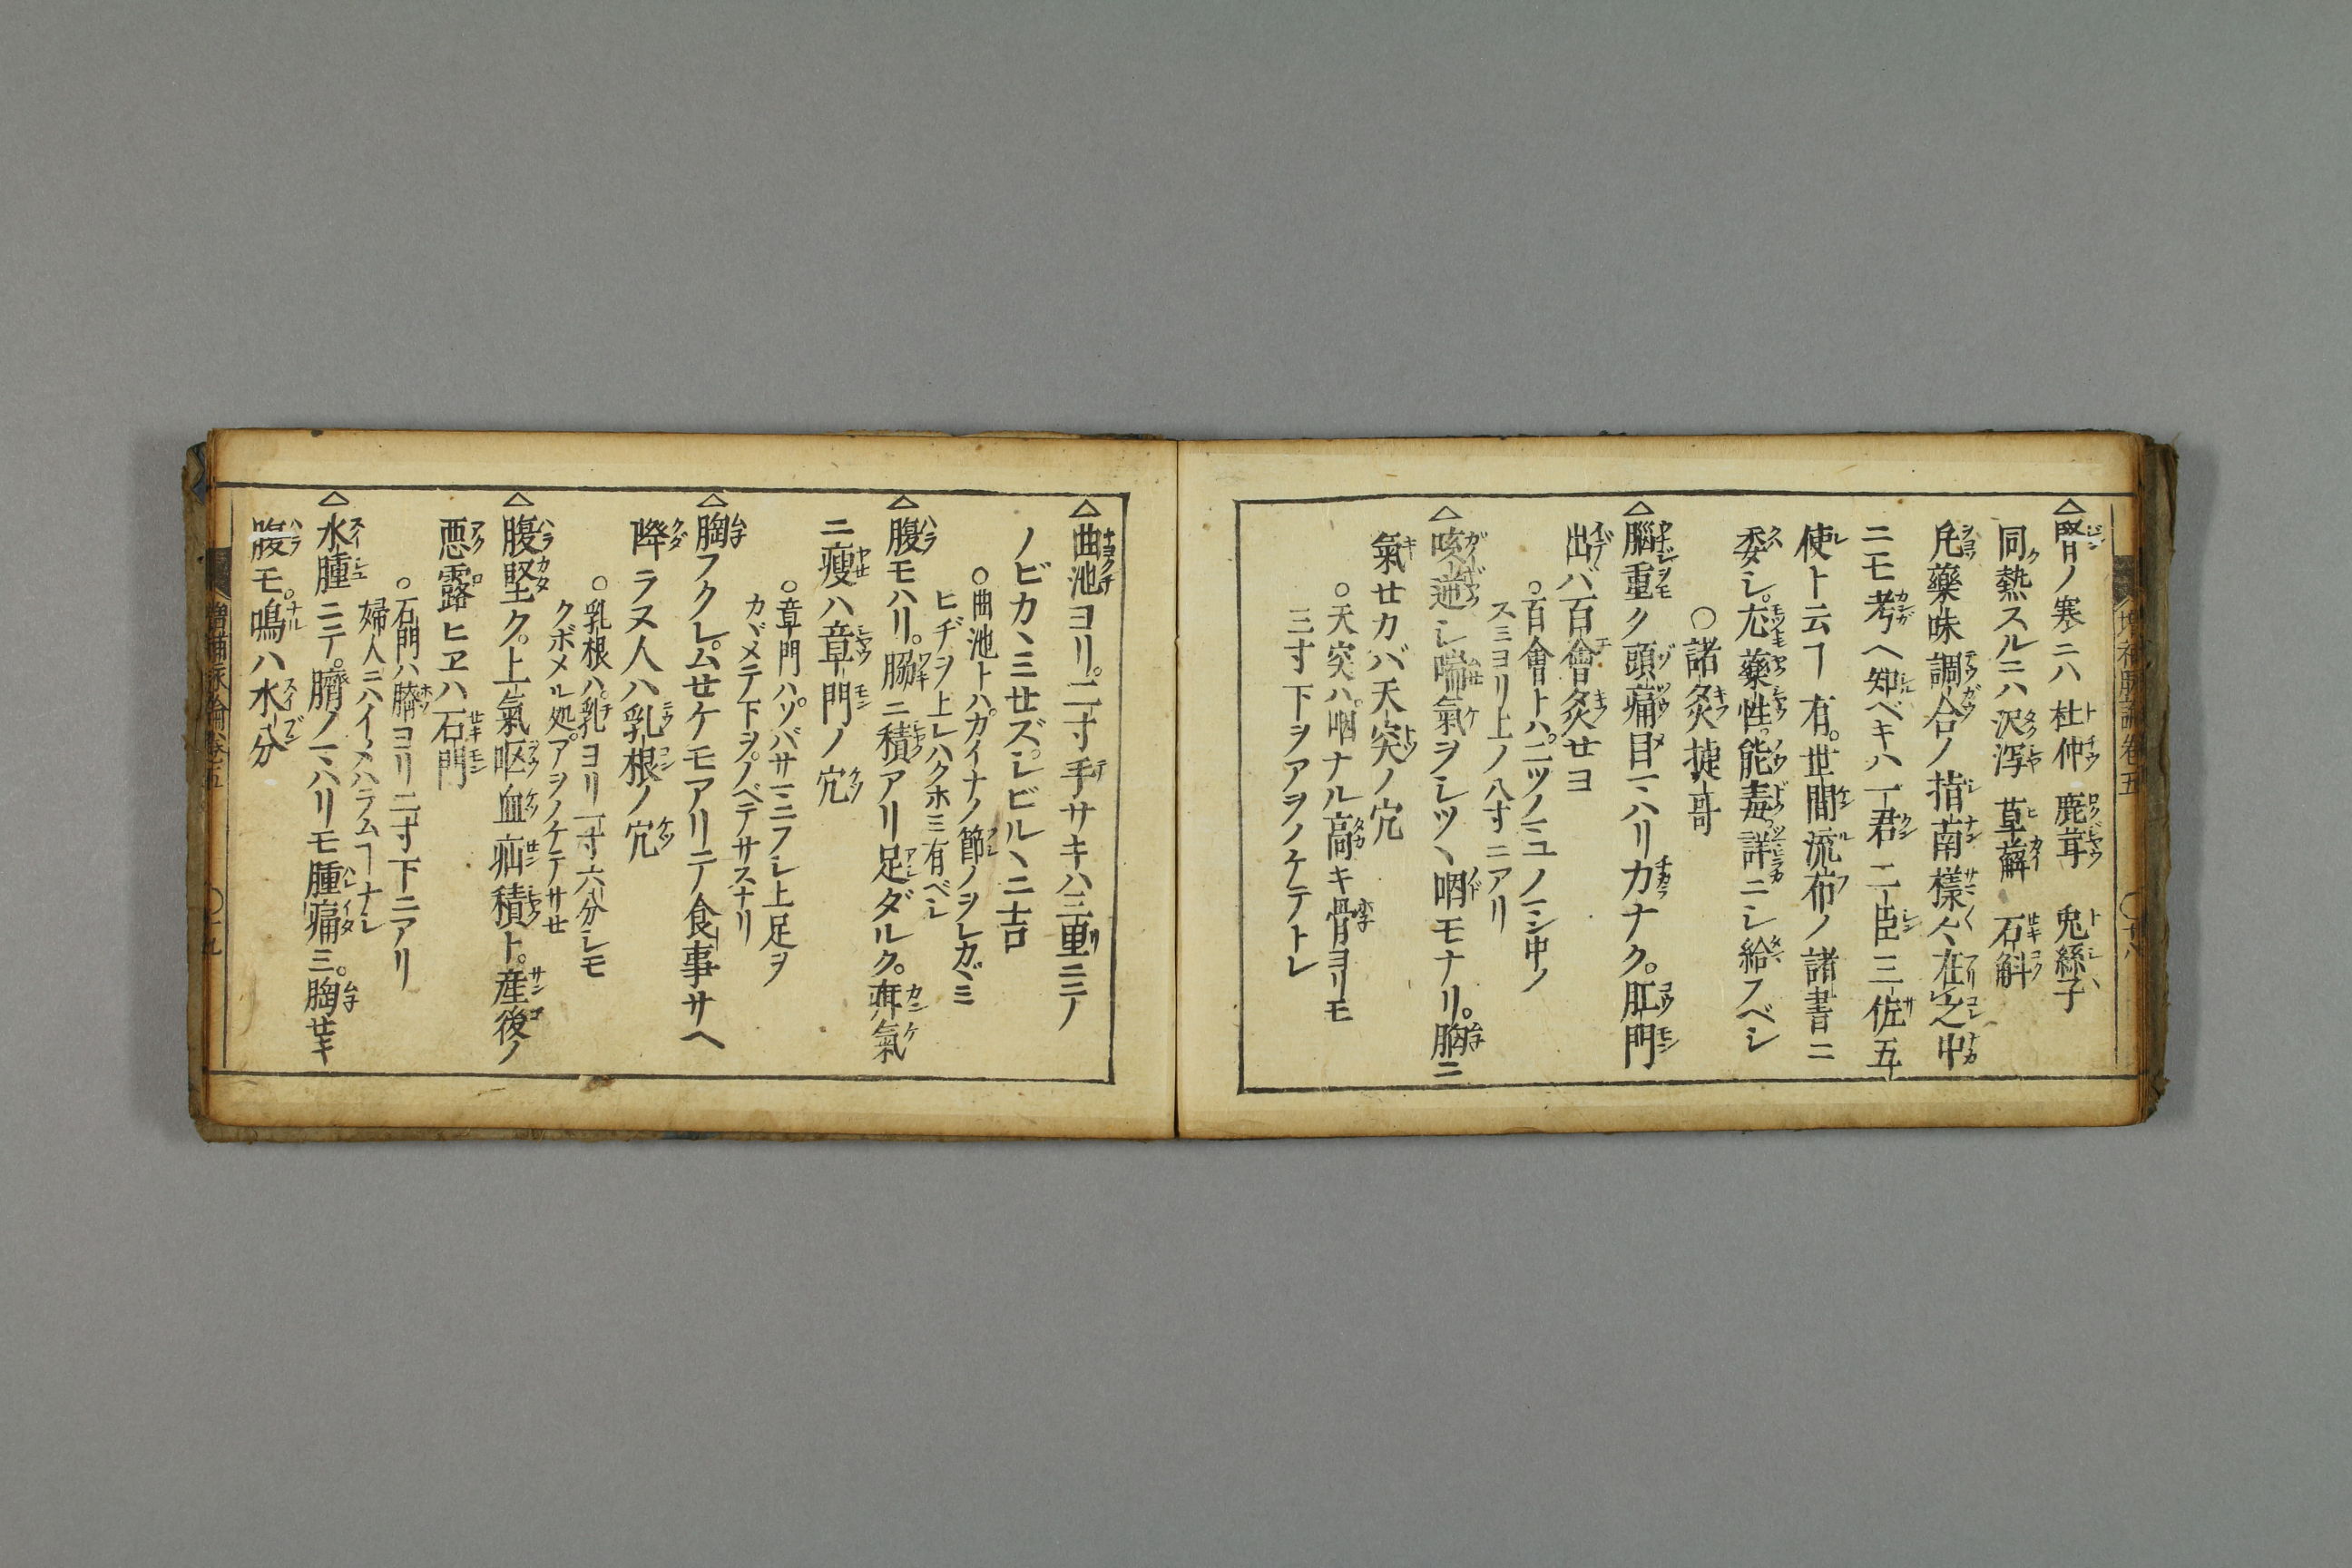 増補脉論巻五 〇十八
△腎ノ寒ニハ 杜仲 鹿茸 兎絲子
同熱スルニハ沢瀉 草薢 石斛
凢藥味調合ノ指南樣々在之中
ニモ考ヘ知ベキハ一君二臣三佐五
使ト云ヿ有。世間流布ノ諸書ニ
委シ。尤藥性。能毒詳ニシ給フベシ
〇諸灸捷哥
△腦重ク頭痛目マハリカナク。肛門
出バ百會灸セヨ
〇百會トハ。二ツノミミノ真中ノ
スミヨリ上ノ八寸ニアリ
△咳逆シ喘氣ヲシツヽ咽モナリ。胸ニ
氣セカバ天突ノ穴
〇天突ハ。咽ナル高キ骨ヨリモ
三寸下ヲアヲノケテトレ
△曲池ヨリ。二寸手サキハ三里ニテ
ノビカヽミセズ。シビルヽニ吉
〇曲池トハ。カイナノ節ノヲレカヾミ
ヒヂヲ上レハクホミ有ベシ
△腹モハリ。脇ニ積アリ足ダルク。疳氣
ニ瘦ハ章門ノ穴
〇章門ハ。ソバサマニフシ上足ヲ
カヾメテ下ヲ。ノベテサスナリ
△胸フクレ。ムセケモアリテ食事サヘ
降ラヌ人ハ乳根ノ穴
〇乳根ハ。乳ヨリ一寸六分シモ
クボメル処。アヲノケテサセ
△腹堅ク。上氣呕血疝積ト。産後ノ
悪露ヒヱハ石門
〇石門ハ臍ヨリ二寸下ニアリ
婦人ニハイメハラムヿナシ
△水腫ニテ。臍ノマハリモ腫痛ミ。胸セキ
腹モ。鳴ハ水分
増補脉論巻五 〇十九